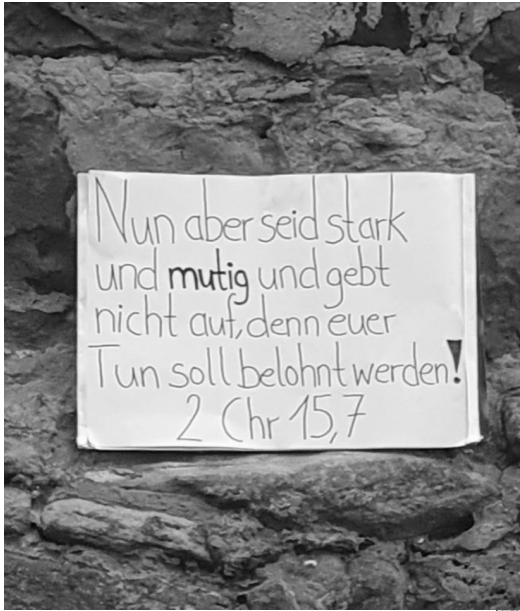 Nun aber seid stark
und mutig und gebt
nicht auf, denn euer
Tun soll belohnt werden!
2 Chr 15,7